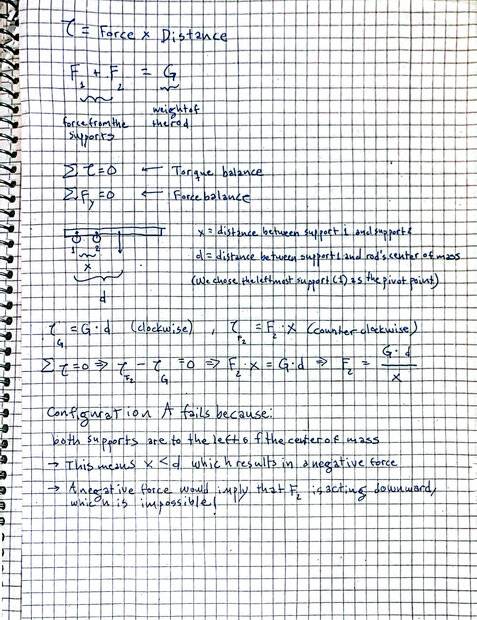 τ = Force × Distance
F₁ + F₂ = G
force from the supports
weight of the rod
Στ=0 ← Torque balance
ΣF_y=0 ← Force balance
1 2
x
d
x = distance between support 1 and support 2
d = distance between support 1 and rod's center of mass
(We chose the leftmost support (1) as the pivot point)
τ_G = G·d (clockwise), τ_F₂ = F₂·x (counter clockwise)
Στ=0 ⇒ τ_F₂ − τ_G = 0 ⇒ F₂·x = G·d ⇒ F₂ = G·d / x
Configuration A fails because:
both supports are to the left of the center of mass
→ This means x<d which results in a negative force
→ A negative force would imply that F₂ is acting downward,
which is impossible!